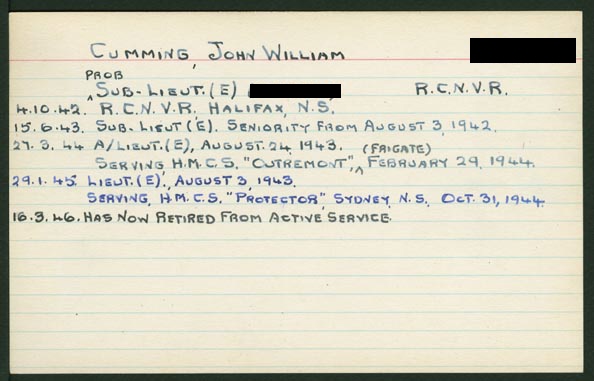 CUMMING, JOHN WILLIAM
PROB
^SUB-LIEUT. (E) R.C.N.V.R.
4.10.42. R.C.N.V.R. HALIFAX, N.S.
15.6.43. SUB-LIEUT (E). SENIORITY FROM AUGUST 3, 1942.
27.3.44 A/LIEUT. (E), AUGUST 24, 1943. (FRIGATE)
SERVING H.M.C.S. "OUTREMONT",^ FEBRUARY 29, 1944.
29.1.45. LIEUT. (E), AUGUST 3, 1943.
SERVING, H.M.C.S. "PROTECTOR", SYDNEY, N.S. OCT. 31, 1944.
16.3.46. HAS NOW RETIRED FROM ACTIVE SERVICE.